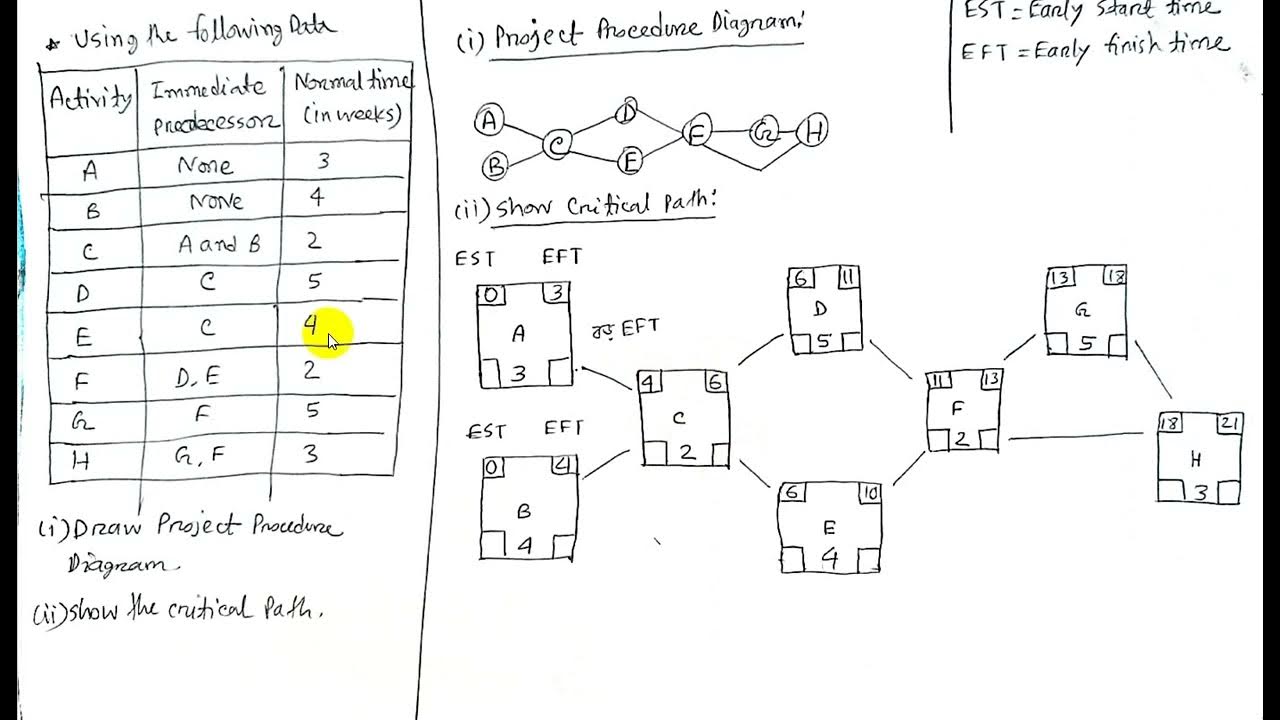 Using the following Data
Activity Immediate predecessor Normal time (in weeks)
A None 3
B None 4
C A and B 2
D C 5
E C 4
F D, E 2
G F 5
H G, F 3
(i) Draw Project Procedure
Diagram.
(ii) Show the critical Path.
(i) Project Procedure Diagram:
A B C D E F G H
(ii) Show Critical Path:
EST EFT
0 3
A
3
বড় EFT
EST EFT
0 4
B
4
4 6
C
2
6 11
D
5
6 10
E
4
11 13
F
2
13 18
G
5
18 21
H
3
EST = Early start time
EFT = Early finish time